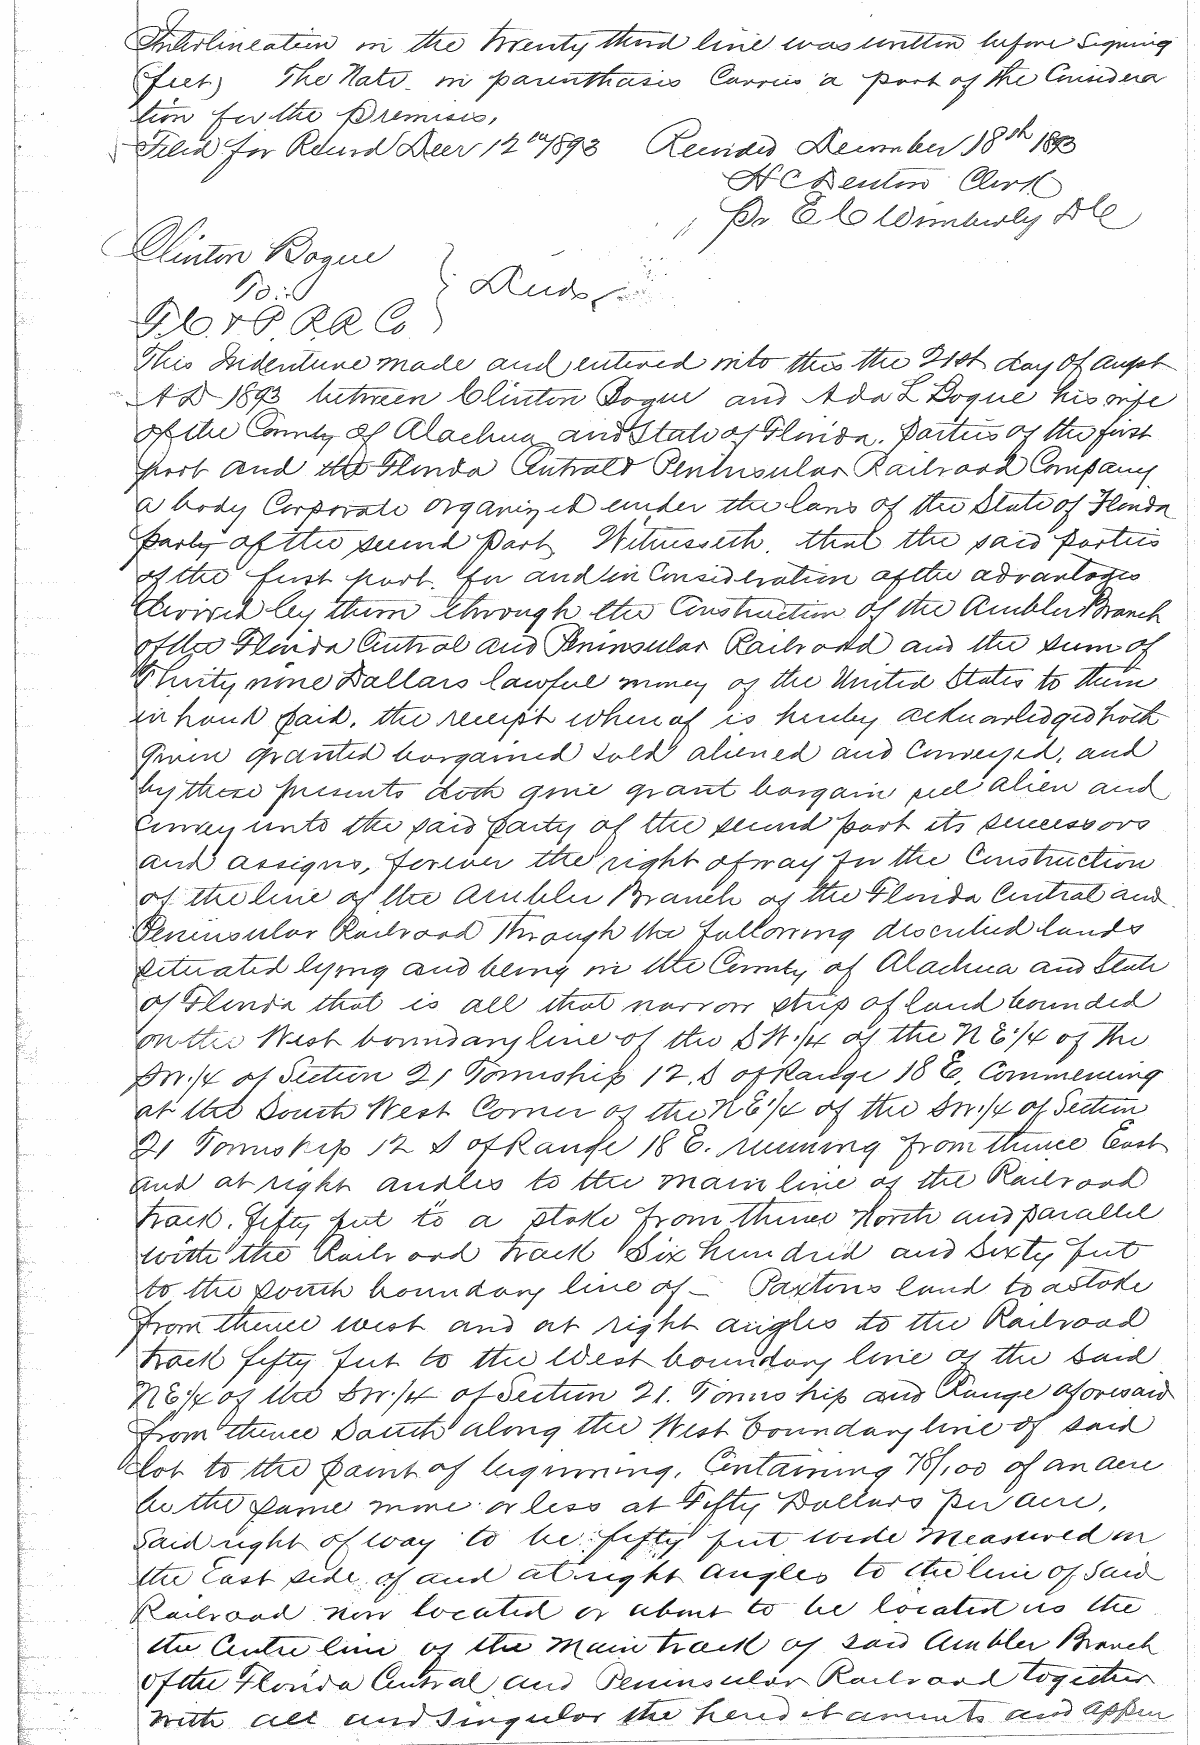 Interlineation on the twenty third line was written before signing
(feet) The Note in parenthasis Carries a part of the Considera
tion for the Premises,
Filed for Record Decr 12th 1893 Recorded December 18th 1893
H C Denton Clerk
Pr E C Wimberly D C
Clinton Bogue
To
F. C. & P. R. R. Co
Deeds
This Indenture made and entered into this the 21st day of August
A D 1893 between Clinton Bogue and Ada L Bogue his wife
of the County of Alachua and State of Florida. Parties of the first
part and the Florida Central & Peninsular Railroad Company
a body Corporate organized under the laws of the State of Florida
party of the second part, Witnesseth, that the said parties
of the first part. for and in Consideration of the advantages
derived by them through the Construction of the Ambler Branch
of the Florida Central and Peninsular Railroad and the sum of
Thirty nine Dollars lawful money of the United States to them
in hand paid, the receipt whereof is hereby acknowledged hath
given granted bargained sold aliened and Conveyed, and
by these presents doth give grant bargain sell alien and
Convey unto the said party of the second part its successors
and assigns, forever the right of way for the Construction
of the line of the Ambler Branch of the Florida Central and
Peninsular Railroad through the following described lands
situated lying and being in the County of Alachua and State
of Florida that is all that narrow strip of land bounded
on the West boundary line of the S W. 1/4 of the N E. 1/4 of the
SW. 1/4 of Section 21 Township 12. S of Range 18 E. Commencing
at the South West Corner of the N E. 1/4 of the SW. 1/4 of Section
21 Township 12 S of Range 18 E. running from thence East
and at right angles to the main line of the Railroad
track. fifty feet to a stake from thence North and parallel
with the Railroad track Six hundred and Sixty feet
to the south boundary line of - Paxtons land to a stake
from thence west and at right angles to the Railroad
track fifty feet to the West boundary line of the said
N E 1/4 of the SW. 1/4 of Section 21. Township and Range aforesaid
from thence South along the West boundary line of said
lot to the point of beginning, Containing 78/100 of an acre
be the same more or less at Fifty Dollars per acre.
Said right of way to be fifty feet wide Measured on
the East side of and at right angles to the line of said
Railroad now located or about to be located is the
the Centre line of the Main track of said Ambler Branch
of the Florida Central and Peninsular Railroad together
with all and Singular the hereditaments and appur